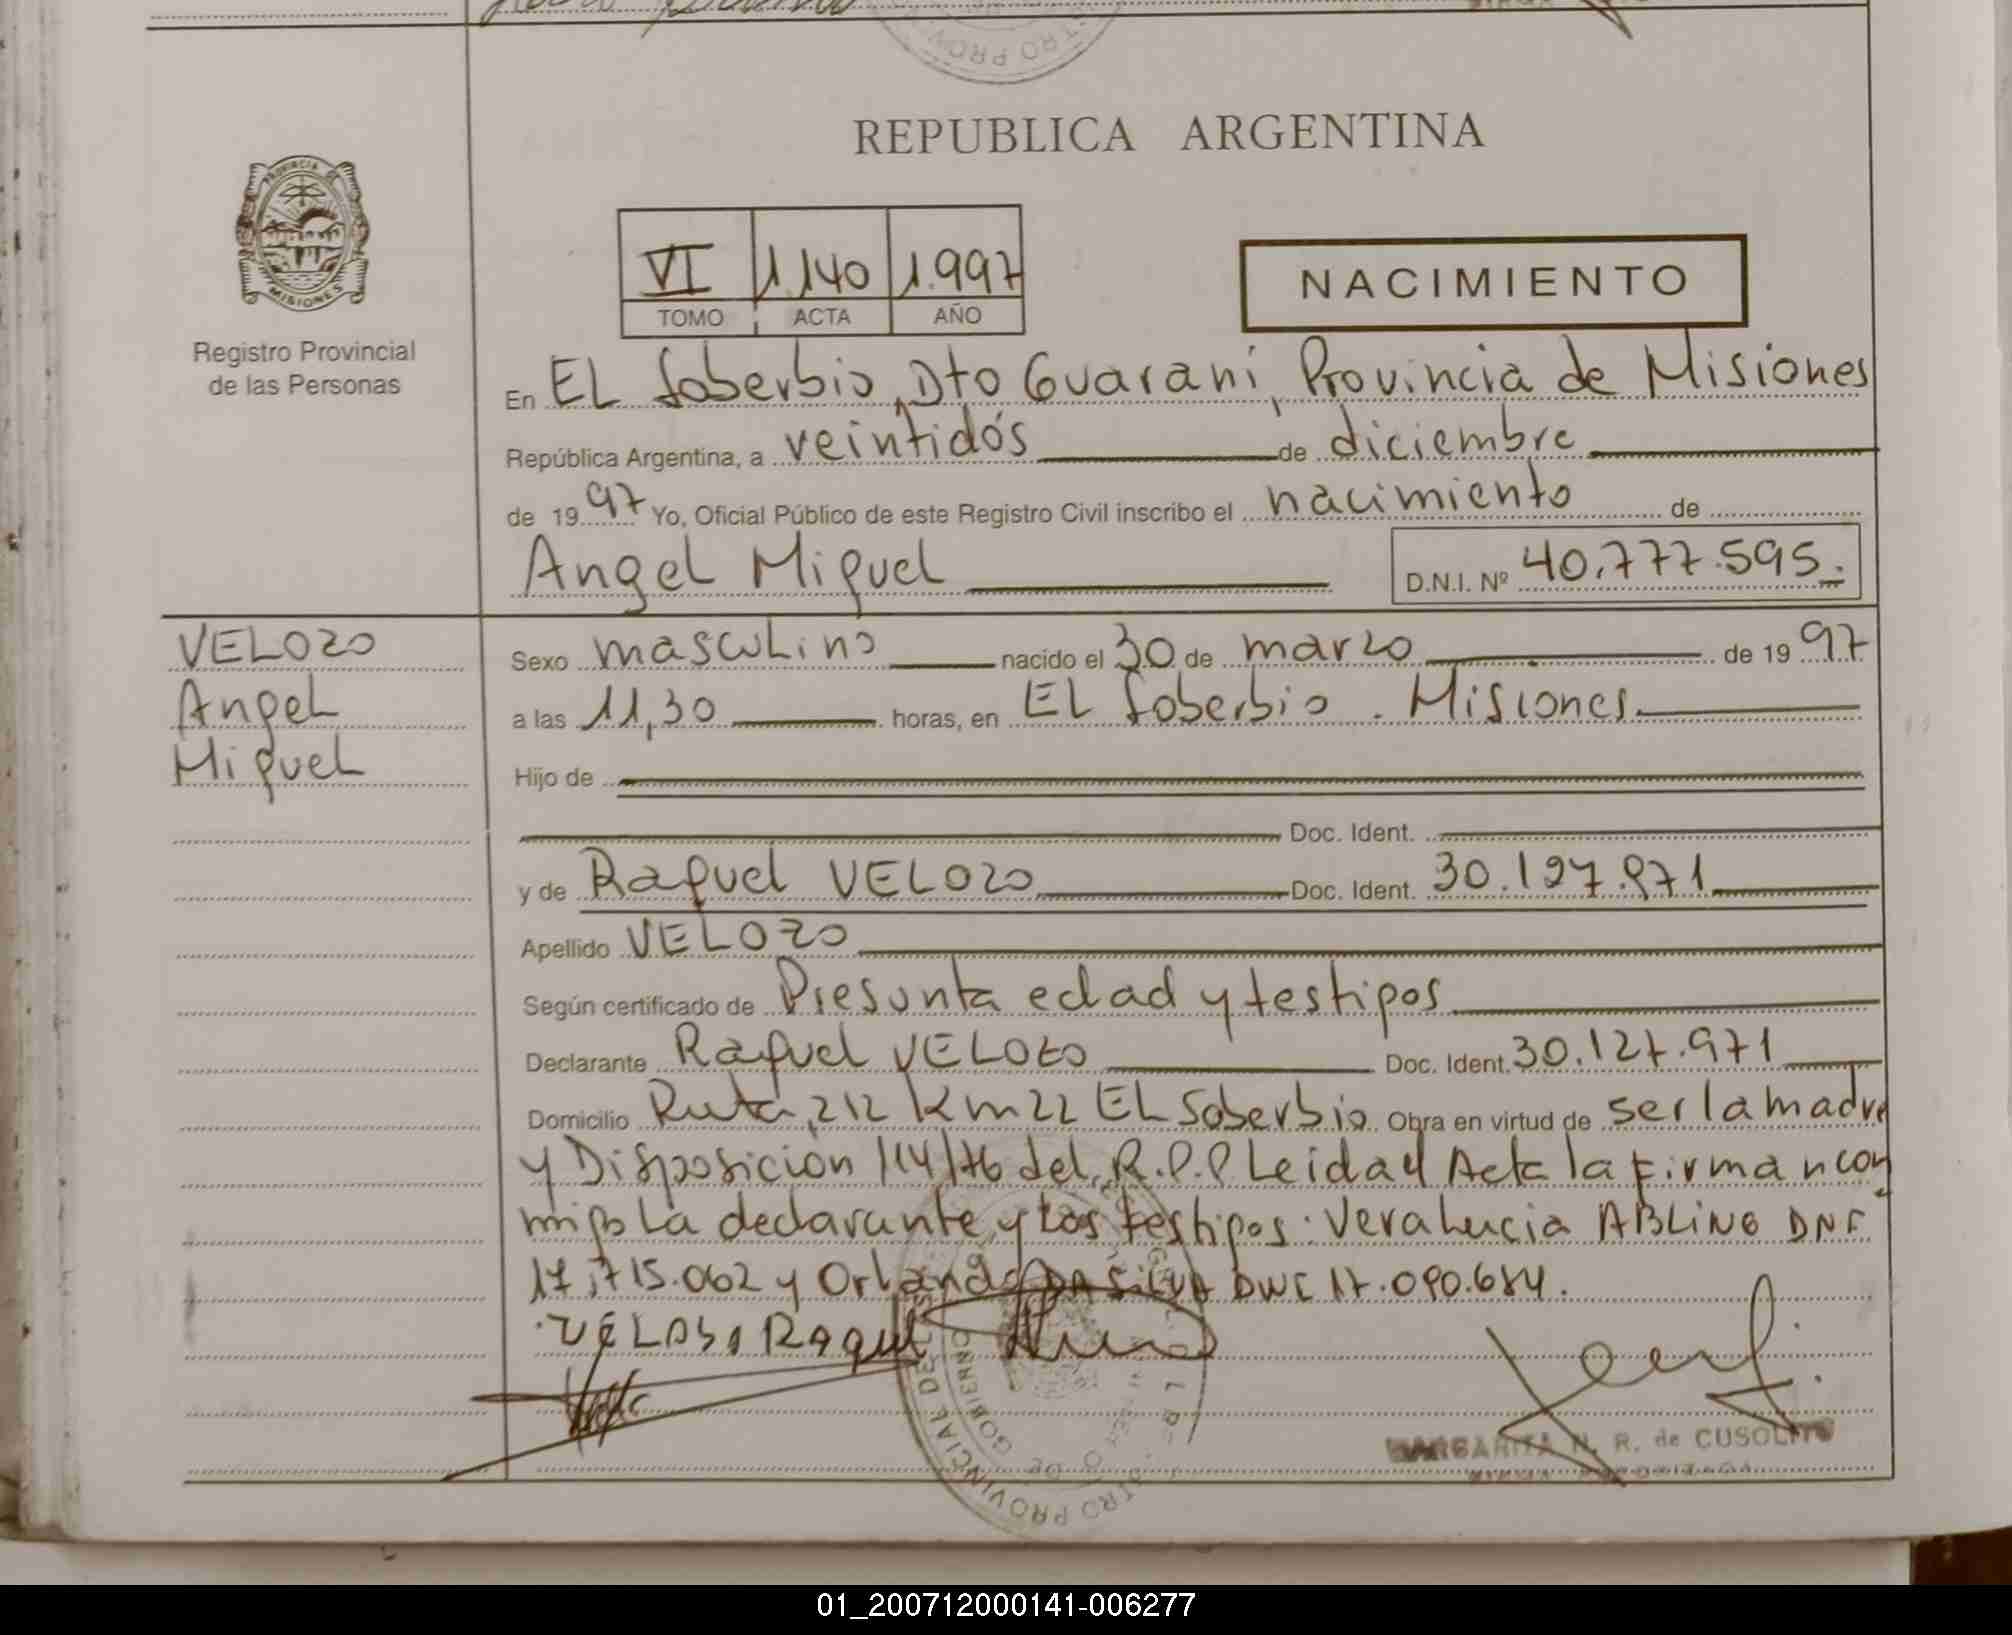 REPUBLICA ARGENTINA
PROVINCIA DE
MISIONES
Registro Provincial
de las Personas
VI 1.140 1.997
TOMO ACTA AÑO
NACIMIENTO
En EL Soberbio, Dto Guaraní, Provincia de Misiones
República Argentina, a veintidós de diciembre
de 1997 Yo, Oficial Público de este Registro Civil inscribo el nacimiento de
Angel Miguel D.N.I. Nº 40.777.595.
VELOZO
Angel
Miguel
Sexo masculino nacido el 30 de marzo de 1997
a las 11,30 horas, en EL Soberbio. Misiones.
Hijo de
Doc. Ident.
y de Raquel VELOZO Doc. Ident. 30.127.971
Apellido VELOZO
Según certificado de Presunta edad y testigos
Declarante Raquel VELOZO Doc. Ident. 30.127.971
Domicilio Ruta 212 Km 22 EL Soberbio Obra en virtud de ser la madre
y Disposición 114/76 del R.P.P Leida el Acta la firman con
migo la declarante y los testigos: Vera Lucia ABLINO DNI
17.715.062 y Orlando DA SILVA DNI 17.090.684.
VELOSO Raquel
MARGARITA N. R. de CUSOLITO
01_200712000141-006277